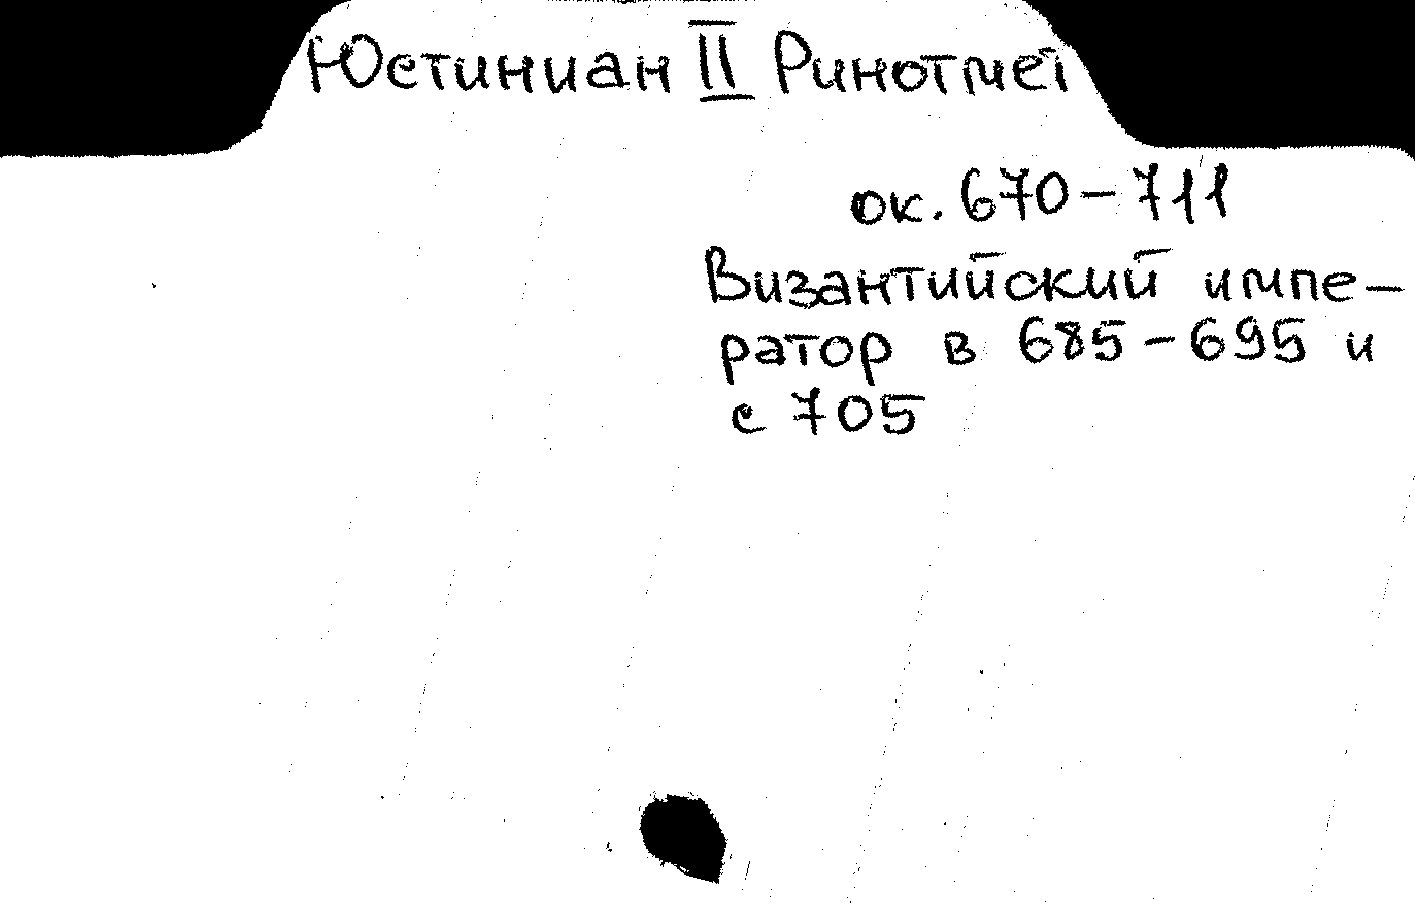 Юстиниан II Ринотмет
ок. 670-711
Византийский импе-
ратор в 685-695 и
с 705